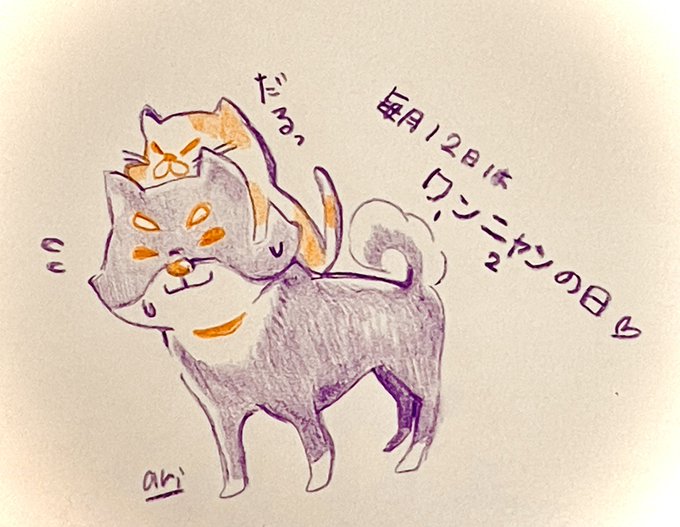 だるっ
毎月12日は
ワンニャンの日♡
1 2
ari